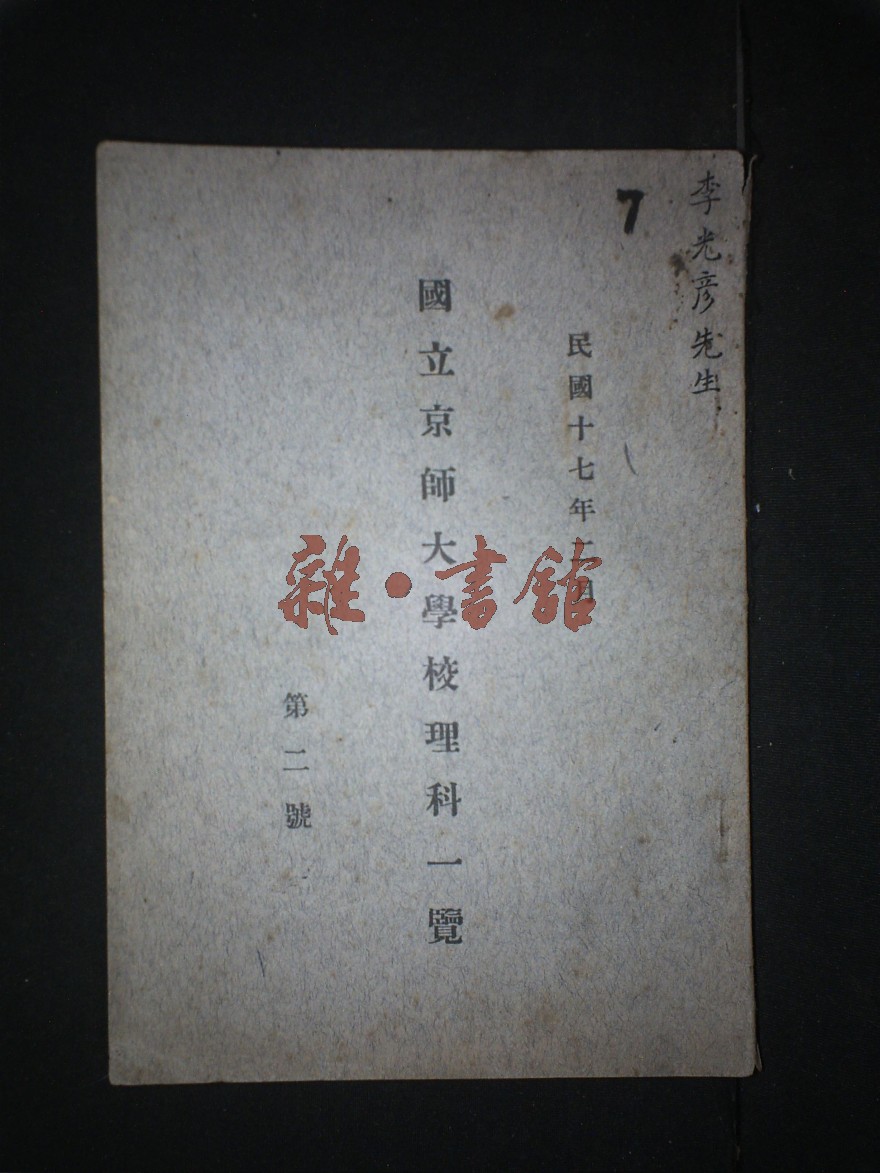 李光彦先生
7
民國十七年二月
國立京師大學校理科一覽
第二號
雜·書館